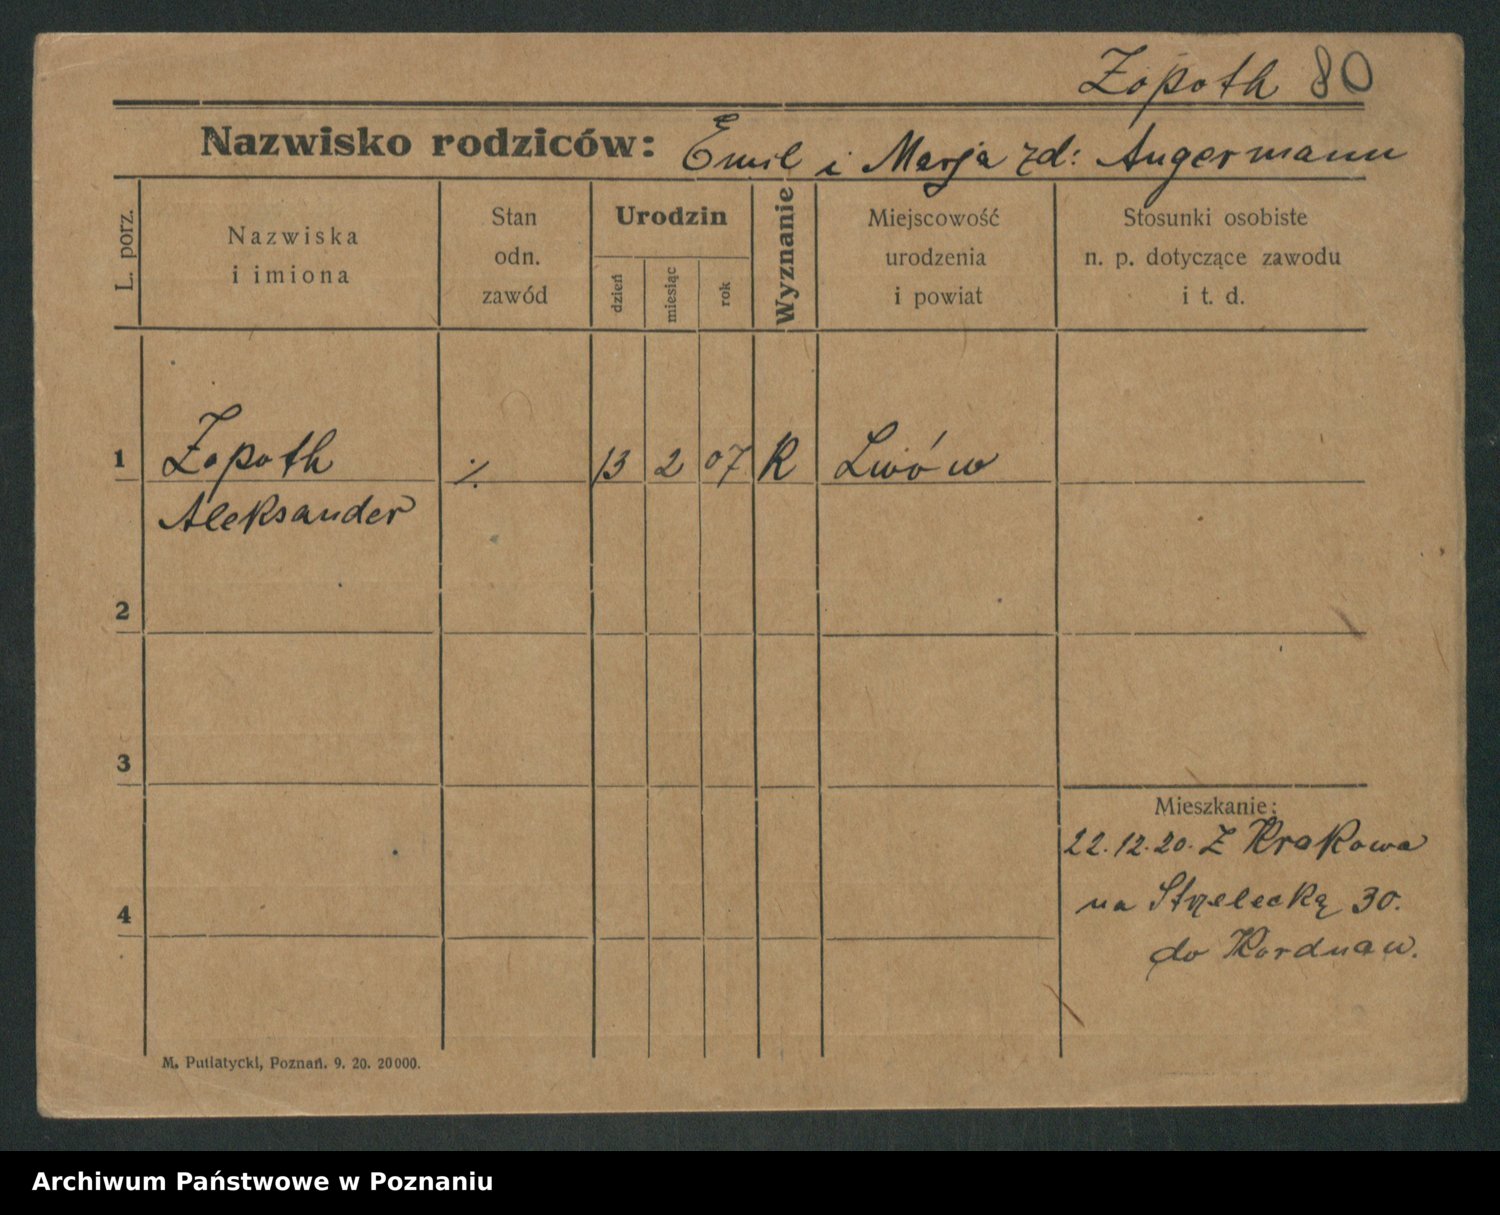 Zopoth 80
Nazwisko rodziców: Emil i Marja zd: Angermann
L. porz.
Nazwiska
i imiona
Stan
odn.
zawód
Urodzin
dzień
miesiąc
rok
Wyznanie
Miejscowość
urodzenia
i powiat
Stosunki osobiste
n. p. dotyczące zawodu
i t. d.
1 Zopoth ./. 13 2 07 R Lwów
Aleksander
2
3
4
Mieszkanie:
22.12.20. Z Krakowa
na Strzelecką 30.
do Kordnaw.
M. Putiatycki, Poznań. 9. 20. 20000.
Archiwum Państwowe w Poznaniu